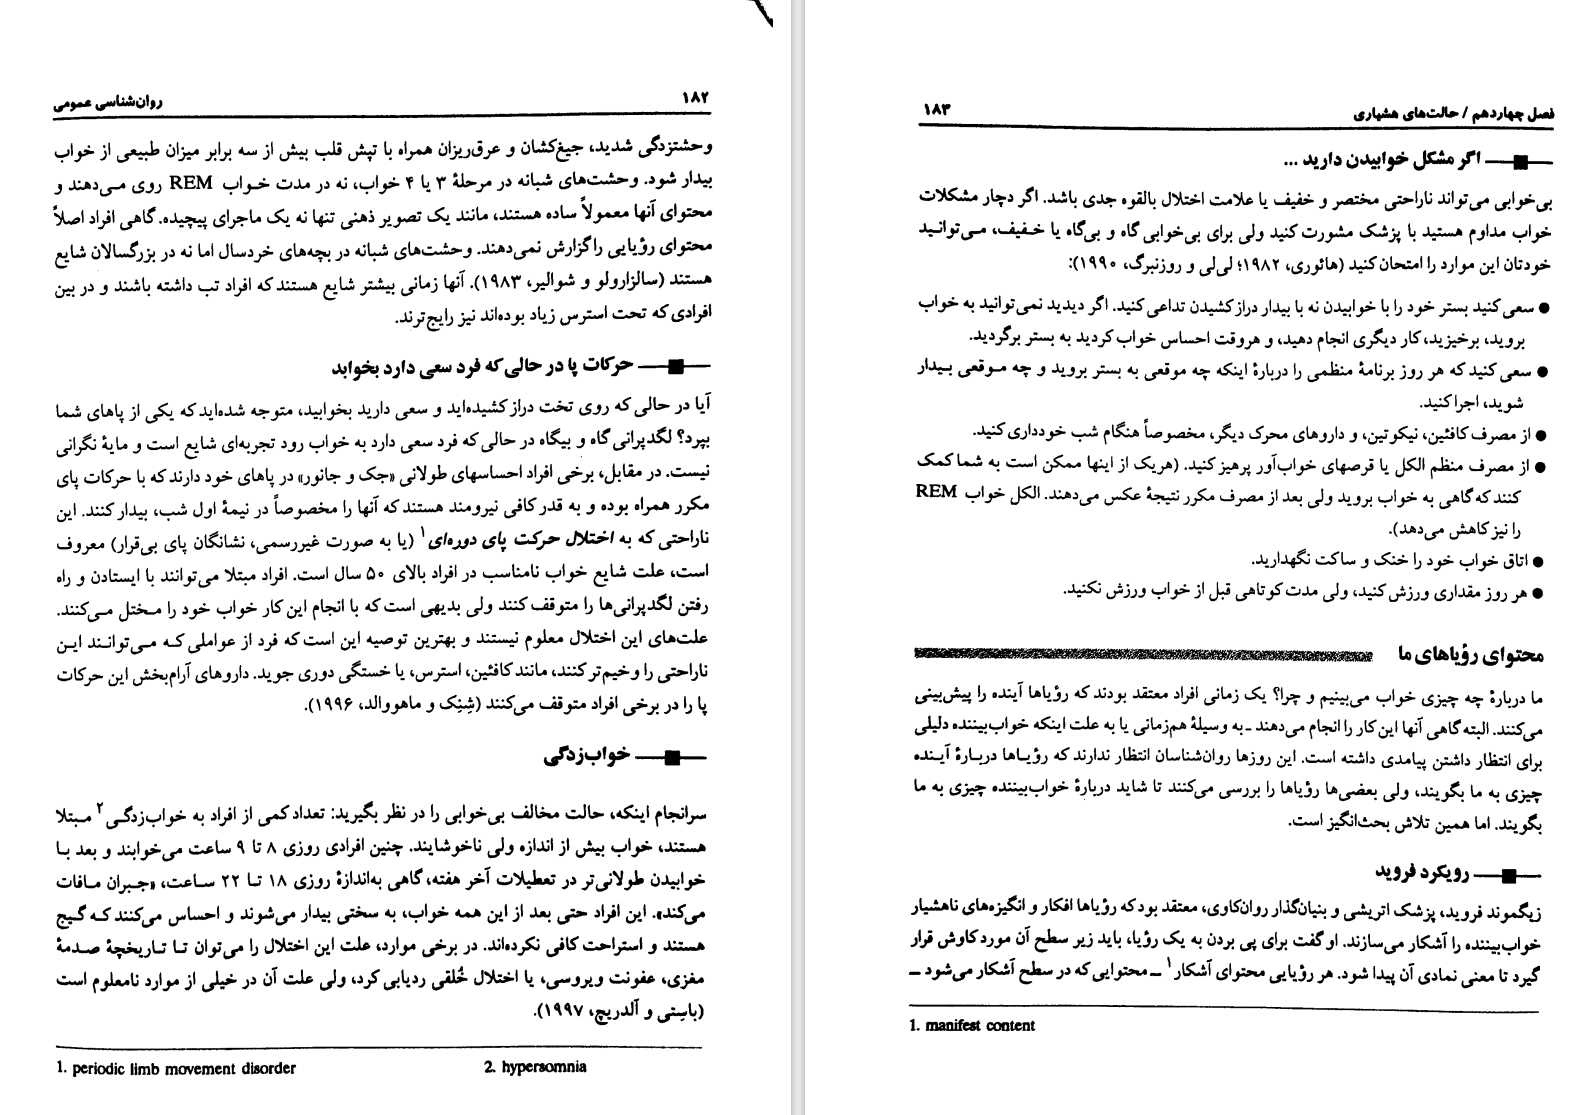 ۱۸۲
روان‌شناسی عمومی
وحشتزدگی شدید، جیغ‌کشان و عرق‌ریزان همراه با تپش قلب بیش از سه برابر میزان طبیعی از خواب
بیدار شود. وحشت‌های شبانه در مرحلهٔ ۳ یا ۴ خواب، نه در مدت خواب REM روی می‌دهند و
محتوای آنها معمولاً ساده هستند، مانند یک تصویر ذهنی تنها نه یک ماجرای پیچیده. گاهی افراد اصلاً
محتوای رؤیایی را گزارش نمی‌دهند. وحشت‌های شبانه در بچه‌های خردسال اما نه در بزرگسالان شایع
هستند (سالزارولو و شوالیر، ۱۹۸۳). آنها زمانی بیشتر شایع هستند که افراد تب داشته باشند و در بین
افرادی که تحت استرس زیاد بوده‌اند نیز رایج‌ترند.
حرکات پا در حالی که فرد سعی دارد بخوابد
آیا در حالی که روی تخت دراز کشیده‌اید و سعی دارید بخوابید، متوجه شده‌اید که یکی از پاهای شما
بپرد؟ لگدپرانی گاه و بیگاه در حالی که فرد سعی دارد به خواب رود تجربه‌ای شایع است و مایهٔ نگرانی
نیست. در مقابل، برخی افراد احساسهای طولانی «جک و جانور» در پاهای خود دارند که با حرکات پای
مکرر همراه بوده و به قدر کافی نیرومند هستند که آنها را مخصوصاً در نیمهٔ اول شب، بیدار کنند. این
ناراحتی که به اختلال حرکت پای دوره‌ای۱ (یا به صورت غیررسمی، نشانگان پای بی‌قرار) معروف
است، علت شایع خواب نامناسب در افراد بالای ۵۰ سال است. افراد مبتلا می‌توانند با ایستادن و راه
رفتن لگدپرانی‌ها را متوقف کنند ولی بدیهی است که با انجام این کار خواب خود را مختل می‌کنند.
علت‌های این اختلال معلوم نیستند و بهترین توصیه این است که فرد از عواملی که می‌توانند این
ناراحتی را وخیم‌تر کنند، مانند کافئین، استرس، یا خستگی دوری جوید. داروهای آرام‌بخش این حرکات
پا را در برخی افراد متوقف می‌کنند (شِنِک و ماهووالد، ۱۹۹۶).
خواب‌زدگی
سرانجام اینکه، حالت مخالف بی‌خوابی را در نظر بگیرید: تعداد کمی از افراد به خواب‌زدگی۲ مبتلا
هستند، خواب بیش از اندازه ولی ناخوشایند. چنین افرادی روزی ۸ تا ۹ ساعت می‌خوابند و بعد با
خوابیدن طولانی‌تر در تعطیلات آخر هفته، گاهی به‌اندازهٔ روزی ۱۸ تا ۲۲ ساعت، «جبران مافات
می‌کند». این افراد حتی بعد از این همه خواب، به سختی بیدار می‌شوند و احساس می‌کنند که گیج
هستند و استراحت کافی نکرده‌اند. در برخی موارد، علت این اختلال را می‌توان تا تاریخچهٔ صدمهٔ
مغزی، عفونت ویروسی، یا اختلال خُلقی ردیابی کرد، ولی علت آن در خیلی از موارد نامعلوم است
(باسِتی و آلدریچ، ۱۹۹۷).
1. periodic limb movement disorder
2. hypersomnia
فصل چهاردهم / حالت‌های هشیاری
۱۸۳
اگر مشکل خوابیدن دارید ...
بی‌خوابی می‌تواند ناراحتی مختصر و خفیف یا علامت اختلال بالقوه جدی باشد. اگر دچار مشکلات
خواب مداوم هستید با پزشک مشورت کنید ولی برای بی‌خوابی گاه و بی‌گاه یا خفیف، می‌توانید
خودتان این موارد را امتحان کنید (هائوری، ۱۹۸۲؛ لی‌لی و روزنبرگ، ۱۹۹۰):
● سعی کنید بستر خود را با خوابیدن نه با بیدار دراز کشیدن تداعی کنید. اگر دیدید نمی‌توانید به خواب
بروید، برخیزید، کار دیگری انجام دهید، و هروقت احساس خواب کردید به بستر برگردید.
● سعی کنید که هر روز برنامهٔ منظمی را دربارهٔ اینکه چه موقعی به بستر بروید و چه موقعی بیدار
شوید، اجرا کنید.
● از مصرف کافئین، نیکوتین، و داروهای محرک دیگر، مخصوصاً هنگام شب خودداری کنید.
● از مصرف منظم الکل یا قرصهای خواب‌آور پرهیز کنید. (هریک از اینها ممکن است به شما کمک
کنند که گاهی به خواب بروید ولی بعد از مصرف مکرر نتیجهٔ عکس می‌دهند. الکل خواب REM
را نیز کاهش می‌دهد).
● اتاق خواب خود را خنک و ساکت نگهدارید.
● هر روز مقداری ورزش کنید، ولی مدت کوتاهی قبل از خواب ورزش نکنید.
محتوای رؤیاهای ما
ما دربارهٔ چه چیزی خواب می‌بینیم و چرا؟ یک زمانی افراد معتقد بودند که رؤیاها آینده را پیش‌بینی
می‌کنند. البته گاهی آنها این کار را انجام می‌دهند ـ به وسیلهٔ هم‌زمانی یا به علت اینکه خواب‌بیننده دلیلی
برای انتظار داشتن پیامدی داشته است. این روزها روان‌شناسان انتظار ندارند که رؤیاها دربارهٔ آینده
چیزی به ما بگویند، ولی بعضی‌ها رؤیاها را بررسی می‌کنند تا شاید دربارهٔ خواب‌بیننده چیزی به ما
بگویند. اما همین تلاش بحث‌انگیز است.
رویکرد فروید
زیگموند فروید، پزشک اتریشی و بنیان‌گذار روان‌کاوی، معتقد بود که رؤیاها افکار و انگیزه‌های ناهشیار
خواب‌بیننده را آشکار می‌سازند. او گفت برای پی بردن به یک رؤیا، باید زیر سطح آن مورد کاوش قرار
گیرد تا معنی نمادی آن پیدا شود. هر رؤیایی محتوای آشکار۱ ـ محتوایی که در سطح آشکار می‌شود ـ
1. manifest content